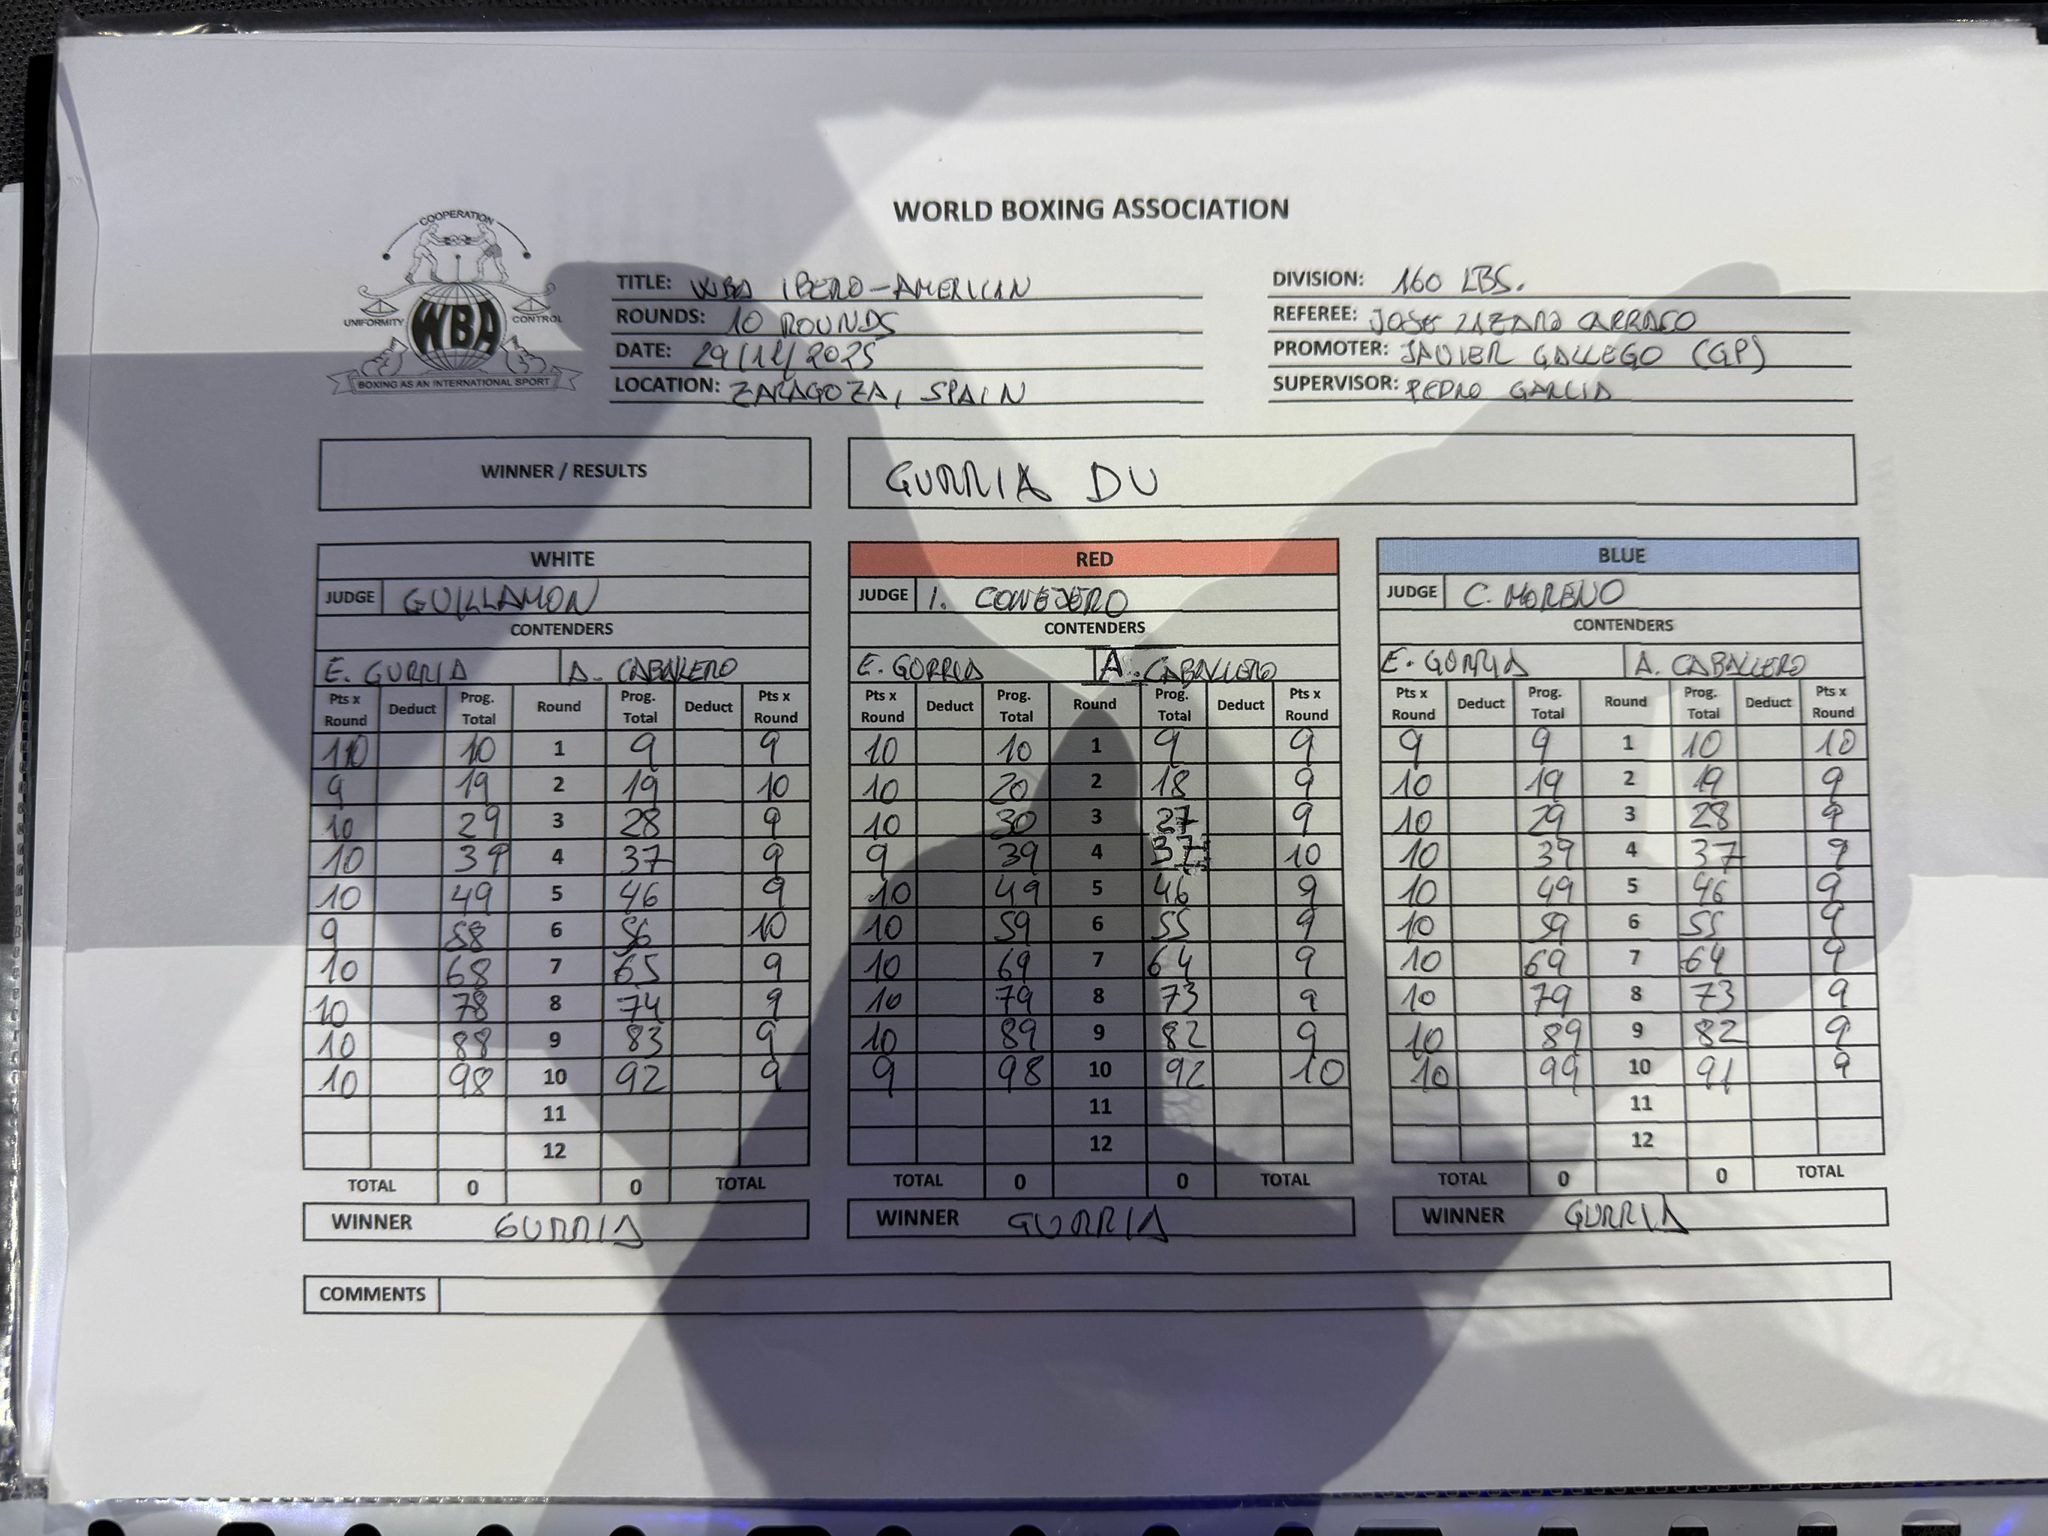 WORLD BOXING ASSOCIATION
COOPERATION
UNIFORMITY WBA CONTROL
BOXING AS AN INTERNATIONAL SPORT
TITLE: WBA IBERO-AMERICAN
ROUNDS: 10 ROUNDS
DATE: 29/11/2025
LOCATION: ZARAGOZA, SPAIN
DIVISION: 160 LBS.
REFEREE: JOSE LAZARO CARRASCO
PROMOTER: JAVIER GALLEGO (GP)
SUPERVISOR: PEDRO GARCIA
WINNER / RESULTS
GURRIA DU
WHITE
JUDGE GUILLAMON
CONTENDERS
E. GURRIA A. CABALLERO
Pts x Round Deduct Prog. Total Round Prog. Total Deduct Pts x Round
10 10 1 9 9
9 19 2 19 10
10 29 3 28 9
10 39 4 37 9
10 49 5 46 9
9 58 6 56 10
10 68 7 65 9
10 78 8 74 9
10 88 9 83 9
10 98 10 92 9
11
12
TOTAL 0 0 TOTAL
WINNER GURRIA
RED
JUDGE I. CONEJERO
CONTENDERS
E. GURRIA A. CABALLERO
Pts x Round Deduct Prog. Total Round Prog. Total Deduct Pts x Round
10 10 1 9 9
10 20 2 18 9
10 30 3 27 9
9 39 4 37 10
10 49 5 46 9
10 59 6 55 9
10 69 7 64 9
10 79 8 73 9
10 89 9 82 9
9 98 10 92 10
11
12
TOTAL 0 0 TOTAL
WINNER GURRIA
BLUE
JUDGE C. MORENO
CONTENDERS
E. GURRIA A. CABALLERO
Pts x Round Deduct Prog. Total Round Prog. Total Deduct Pts x Round
9 9 1 10 10
10 19 2 19 9
10 29 3 28 9
10 39 4 37 9
10 49 5 46 9
10 59 6 55 9
10 69 7 64 9
10 79 8 73 9
10 89 9 82 9
10 99 10 91 9
11
12
TOTAL 0 0 TOTAL
WINNER GURRIA
COMMENTS